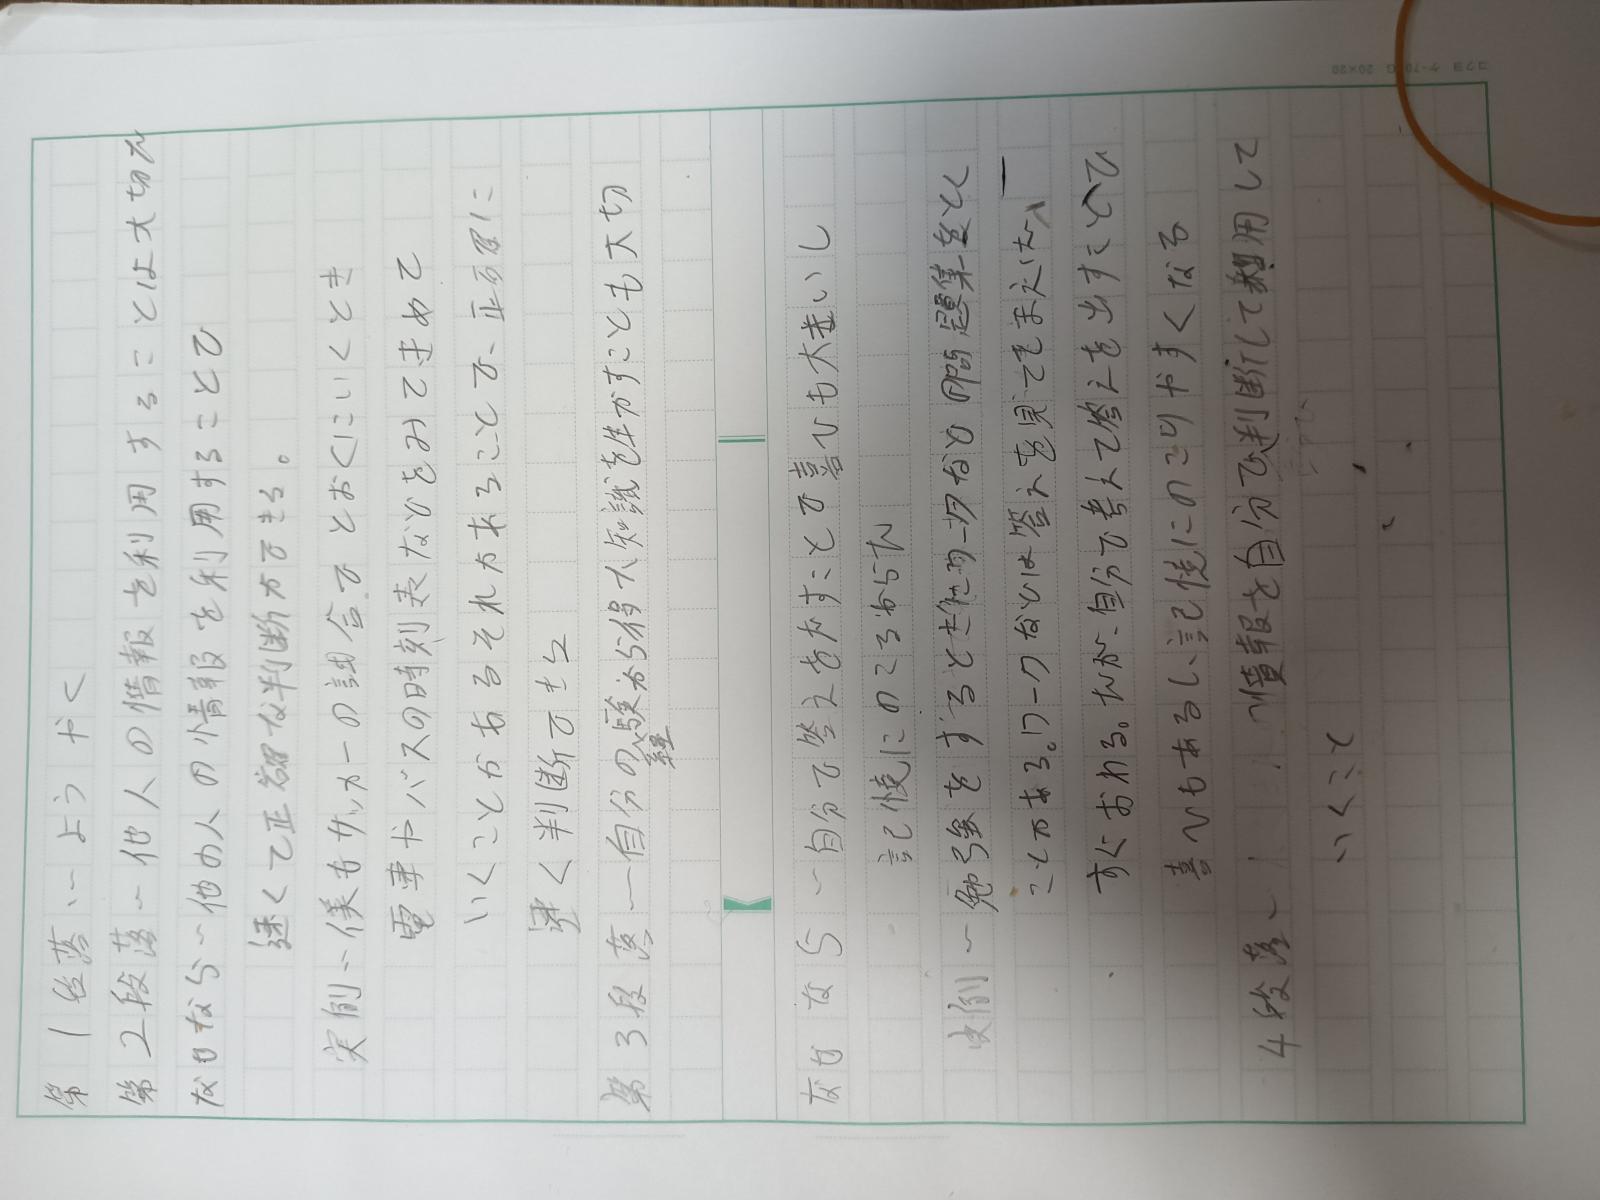 コクヨ ケ-70 20×20
第1段落…ようやく
第2段落〜他人の情報を利用することは大切だ
なぜなら〜他の人の情報を利用することで
速くて正確な判断ができる。
実例〜僕もサッカーの試合でとおくにいくとき
電車やバスの時刻表などをみてきめて
いくことがあるそれがあることで、正確に
早く判断できた
第3段落〜自分の経験から得た知識を生かすことも大切
なぜなら〜自分で答えをだすことで喜びも大きいし
記憶にのこるからだ
実例〜勉強をするときだれワークなどの問題集をとく
ことがある。ワークなどは答えを見てをまえば、
すぐおわる。だが、自分で考えて答えを出すことで
喜びもあるし記憶にのこりやすくなる
4段落〜情報を自分で判断して利用して
いくこと